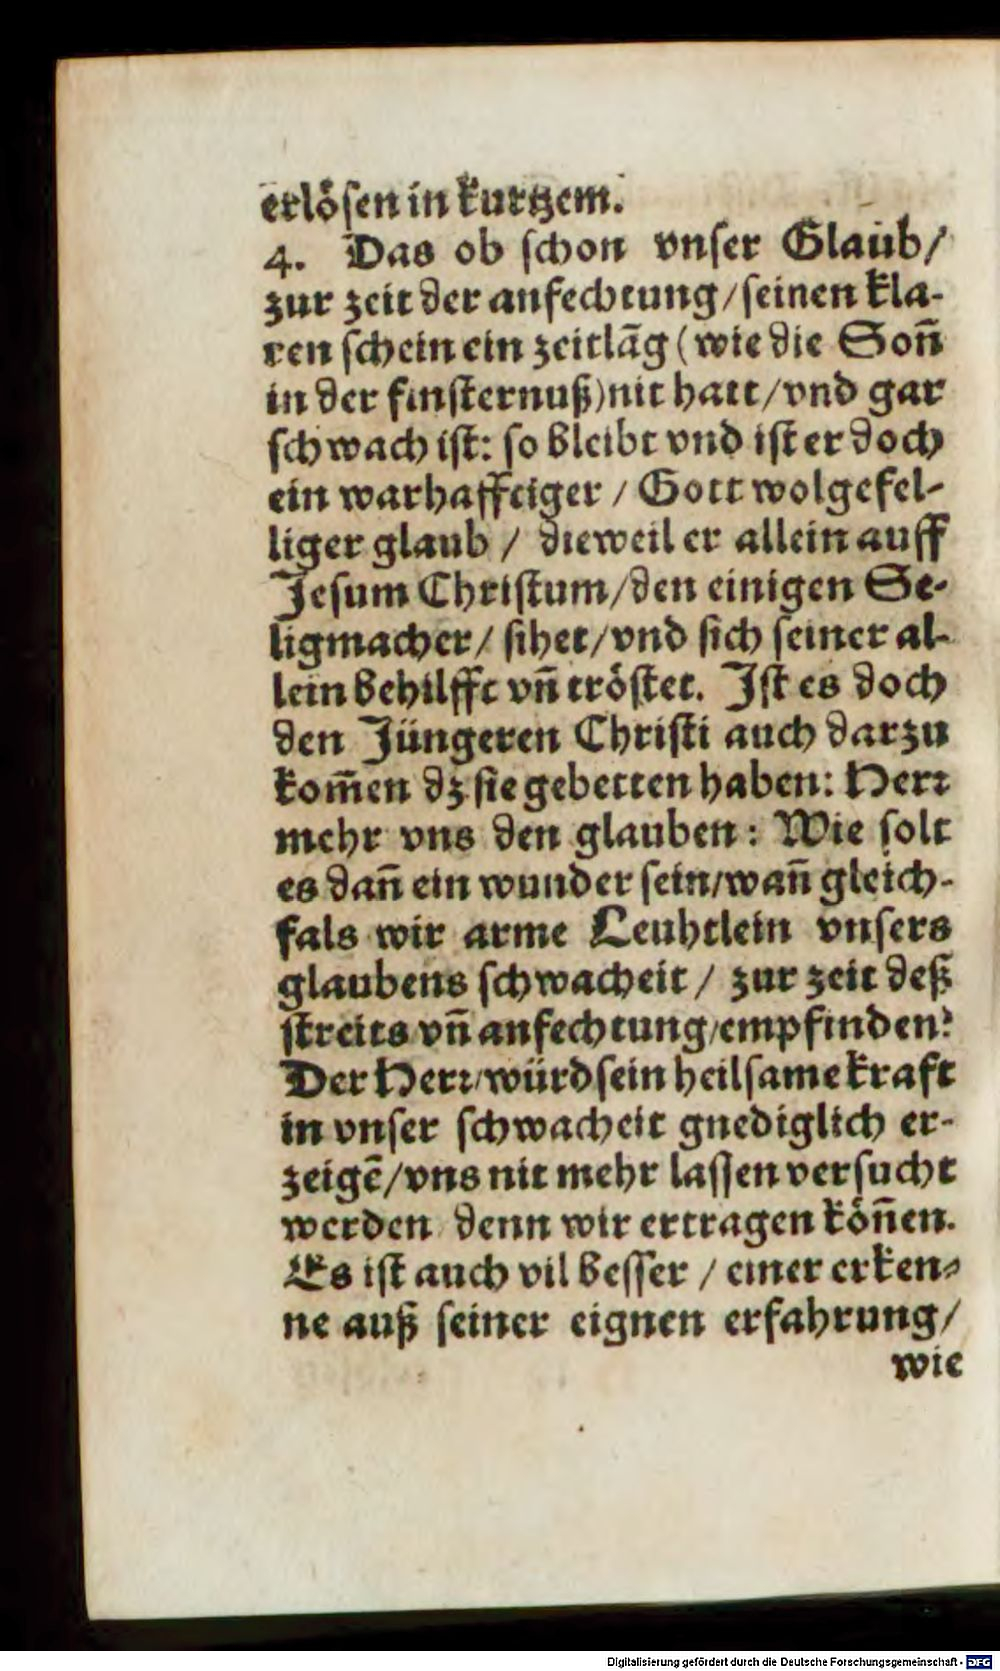 erlösen in kurtzem.
4. Das ob schon vnser Glaub/
zur zeit der anfechtung/seinen kla-
ren schein ein zeitlãg (wie die Soñ
in der finsternuß)nit hatt/vnd gar
schwach ist: so bleibt vnd ist er doch
ein warhafftiger / Gott wolgefel-
liger glaub / dieweil er allein auff
Jesum Christum/den einigen Se-
ligmacher/ sihet/vnd sich seiner al-
lein behilfft vñ tröstet. Ist es doch
den Jüngeren Christi auch darzu
kom̃en dz sie gebetten haben: Herꝛ
mehr vns den glauben: Wie solt
es dañ ein wunder sein/wañ gleich-
fals wir arme Leuhtlein vnsers
glaubens schwacheit / zur zeit deß
streits vñ anfechtung/empfinden?
Der Herꝛ/würd sein heilsame kraft
in vnser schwacheit gnediglich er-
zeigẽ/vns nit mehr lassen versucht
werden denn wir ertragen köñen.
Es ist auch vil besser / einer erken-
ne auß seiner eignen erfahrung/
wie
Digitalisierung gefördert durch die Deutsche Forschungsgemeinschaft - DFG